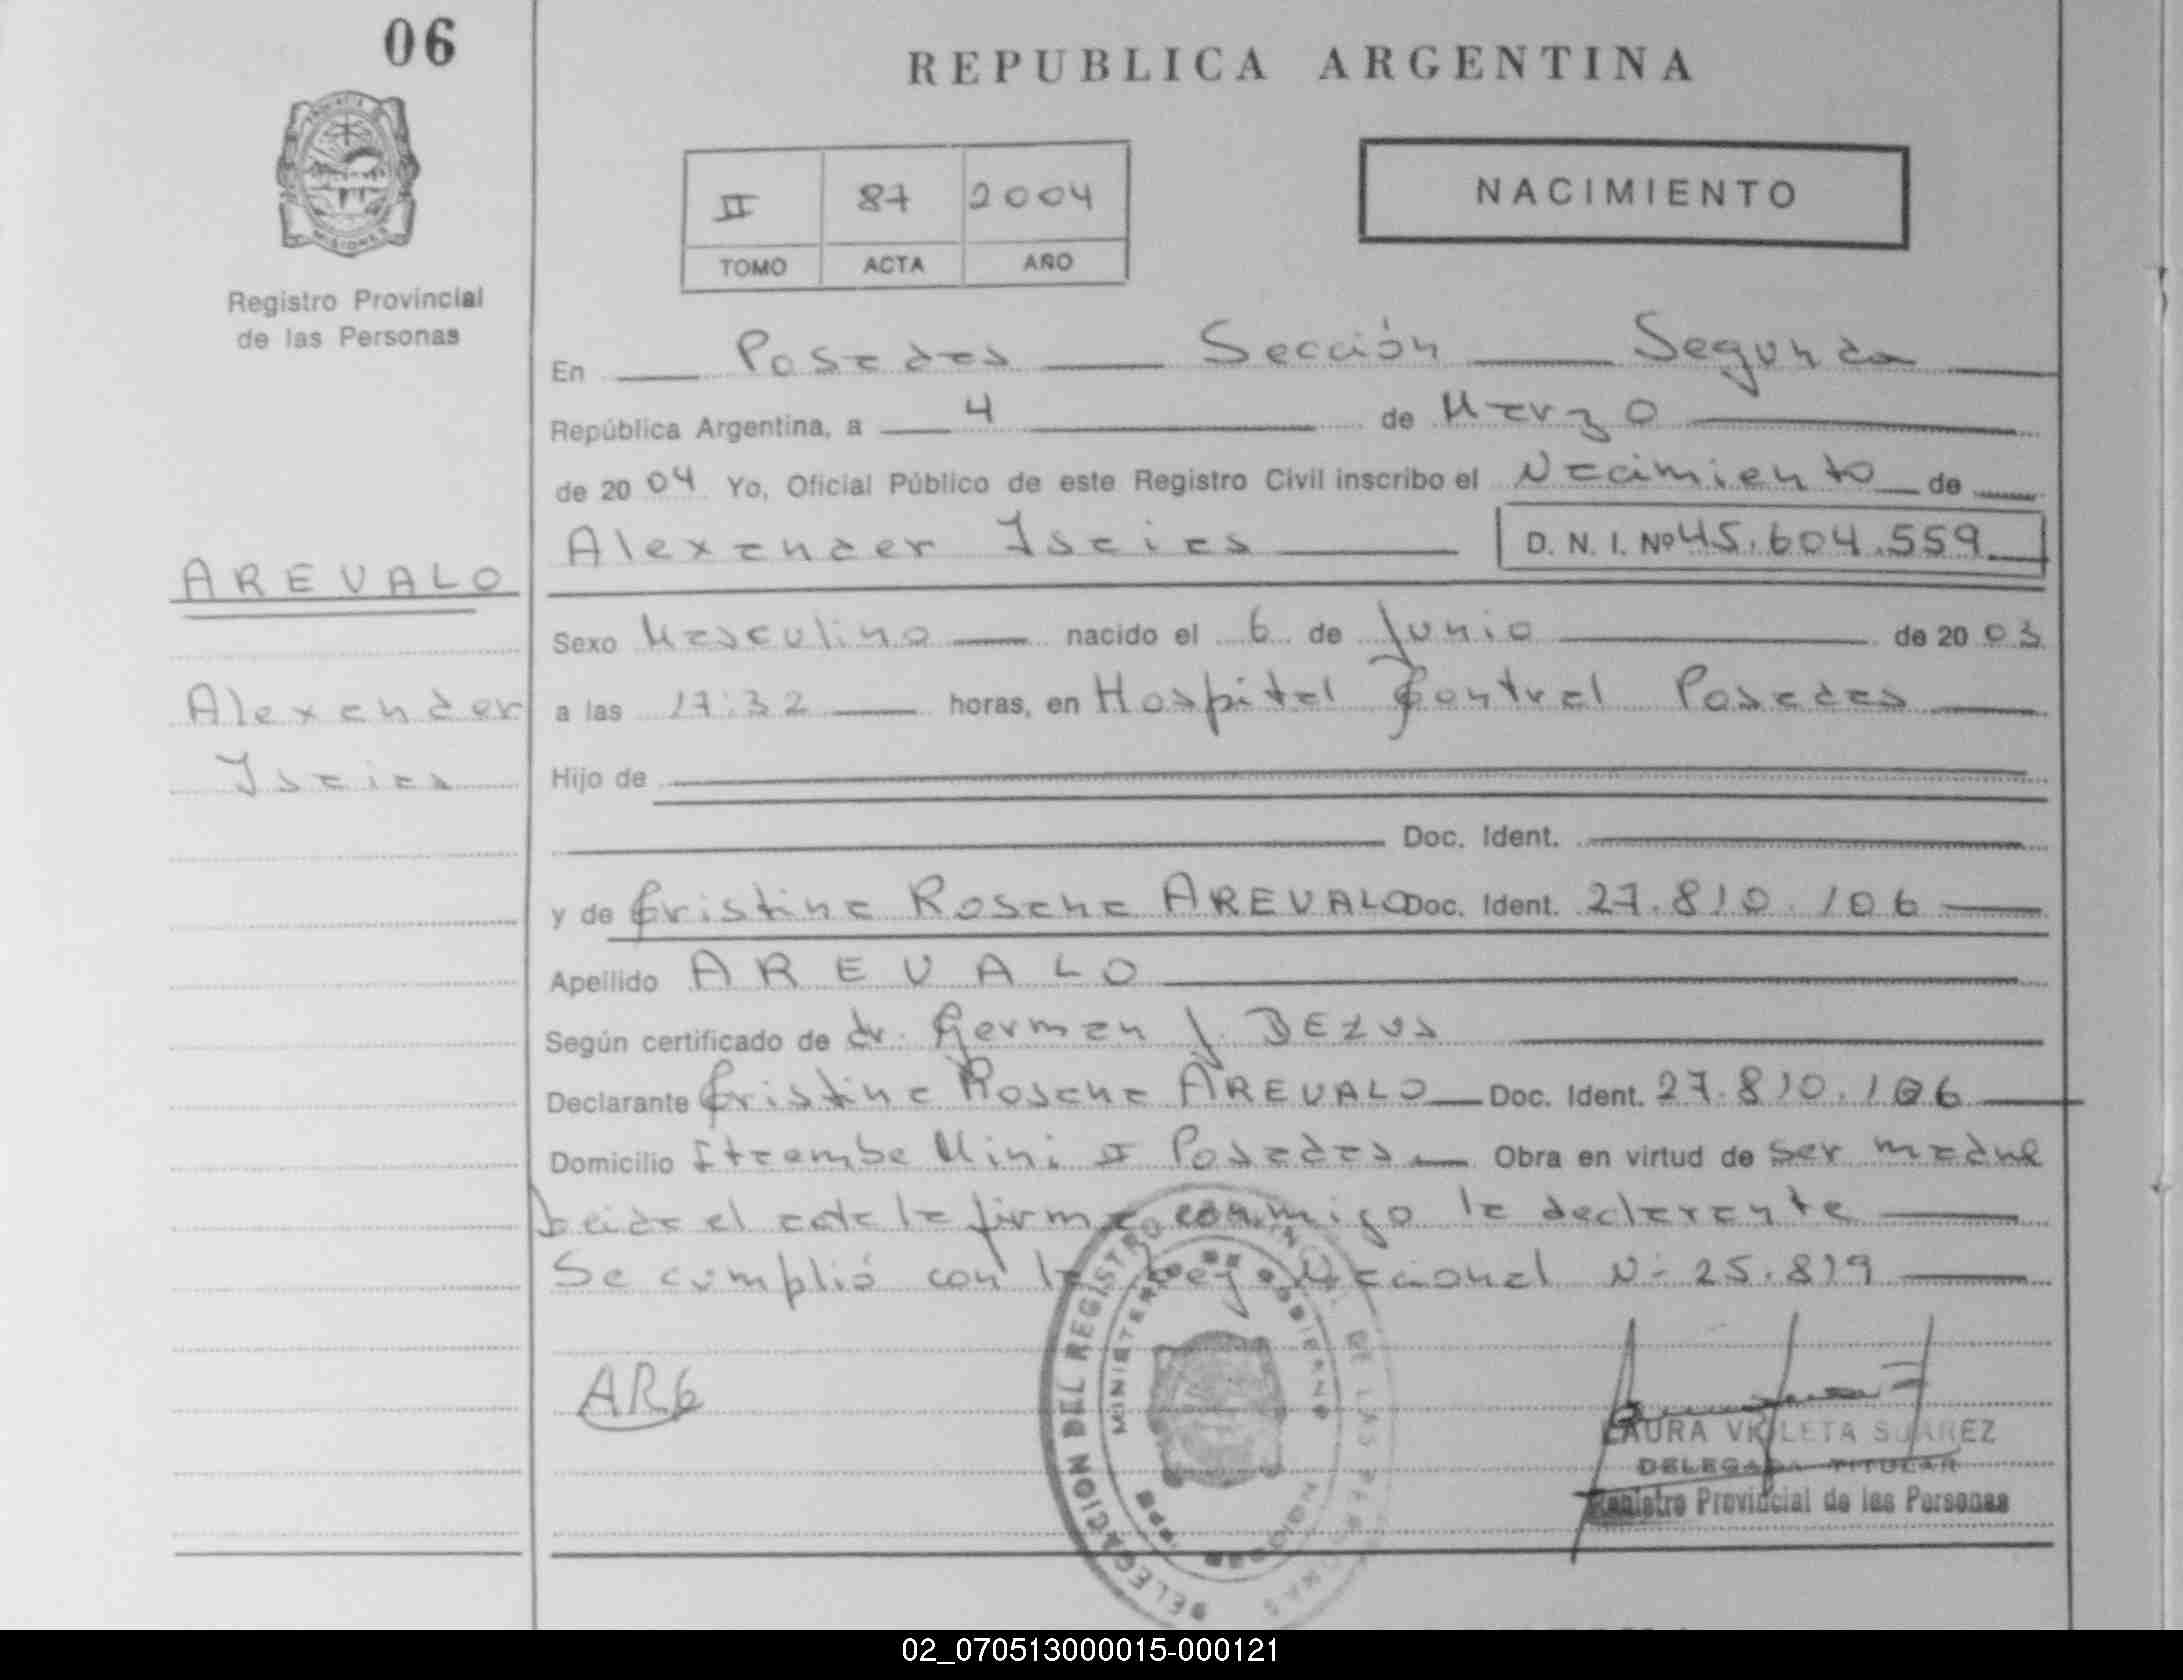 06
REPUBLICA ARGENTINA
MISIONES
II 87 2004
TOMO ACTA AÑO
NACIMIENTO
Registro Provincial
de las Personas
En Posadas Sección Segunda
República Argentina, a 4 de Marzo
de 2004 Yo, Oficial Público de este Registro Civil inscribo el Nacimiento de
Alexander Isaias D. N. I. Nº 45.604.559
AREVALO
Alexander
Isaias
Sexo Masculino nacido el 6 de Junio de 2003
a las 17:32 horas, en Hospital Central Posadas
Hijo de
Doc. Ident.
y de Cristina Rosana AREVALO Doc. Ident. 27.810.106
Apellido AREVALO
Según certificado de dr. German J. BEZUS
Declarante Cristina Rosana AREVALO Doc. Ident. 27.810.106
Domicilio Itaembe Mini II Posadas Obra en virtud de ser madre
Leida el acta la firma conmigo la declarante
Se cumplió con la Ley Nacional Nº 25.819
DELEGACION DEL REGISTRO PROVINCIAL DE LAS PERSONAS
MINISTERIO DE GOBIERNO
LAURA VIOLETA SUAREZ
DELEGADA TITULAR
Registro Provincial de las Personas
02_070513000015-000121